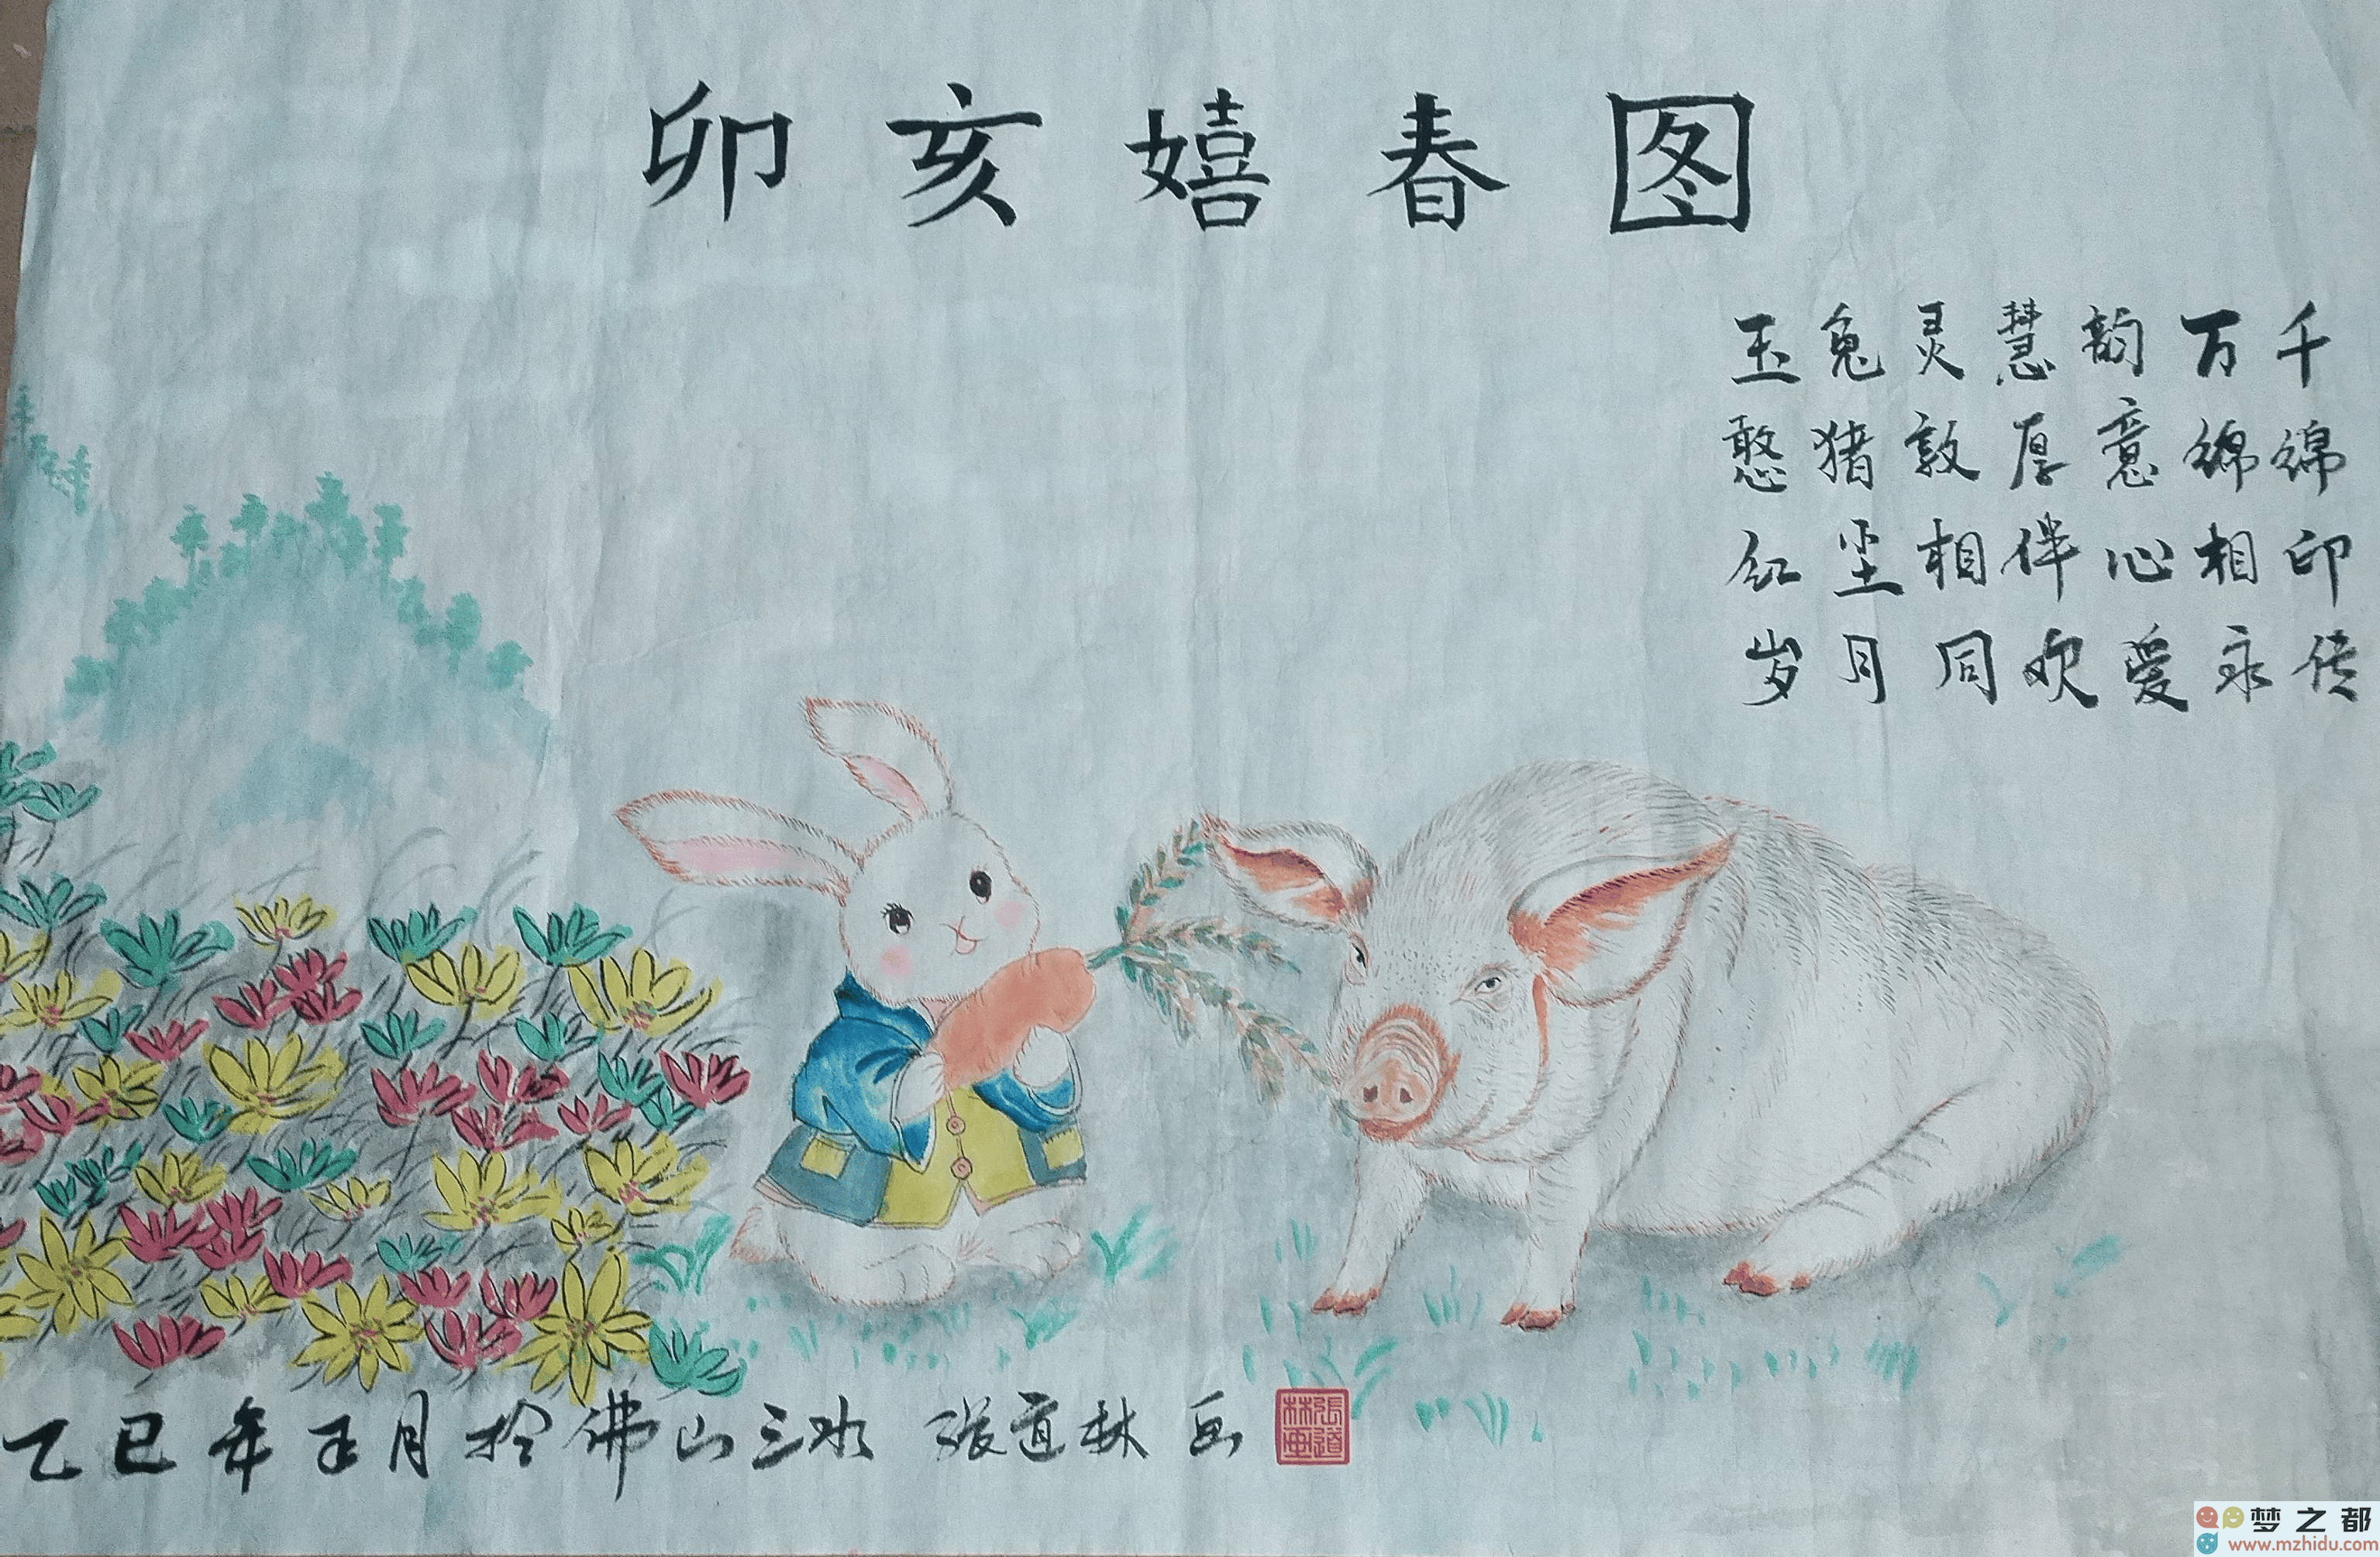 卯亥嬉春图
玉兔灵慧韵万千
憨猪敦厚意绵绵
红尘相伴心相印
岁月同欢爱永传
乙巳年正月於佛山三水 张道林画
張道林画
梦之都
www.mzhidu.com